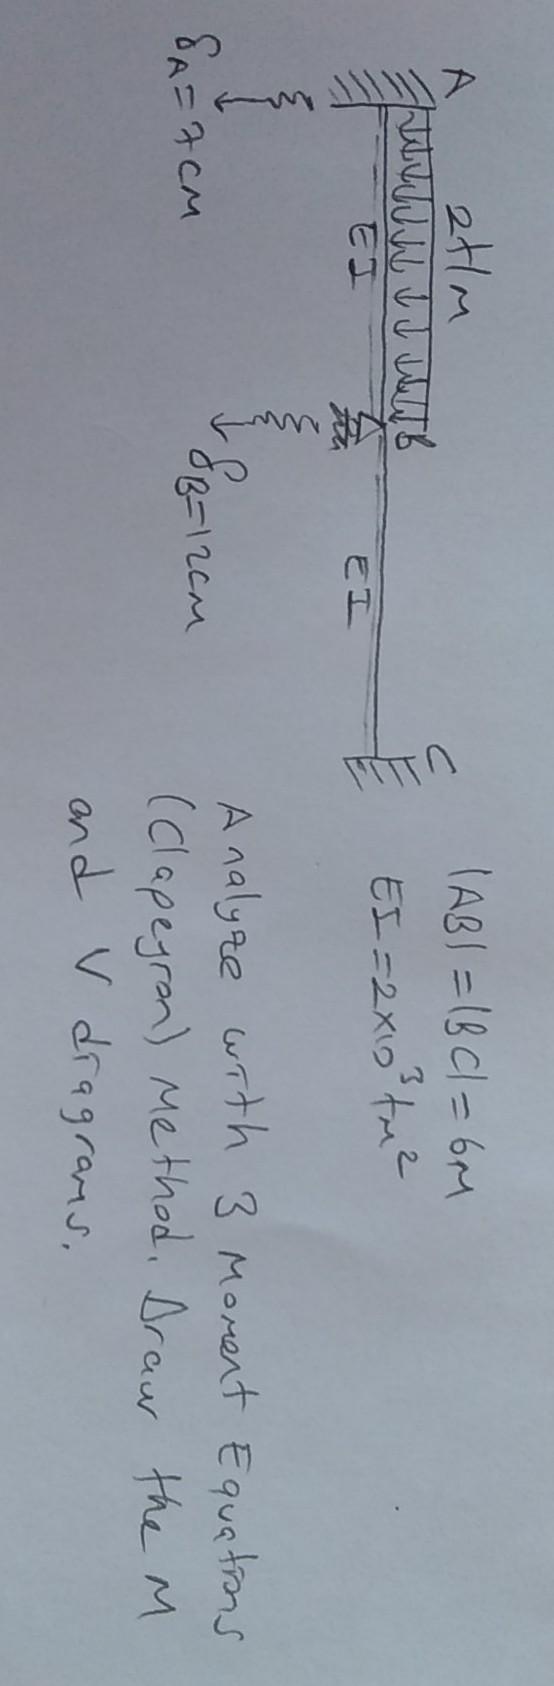 2t/m
A
B
C
EI
EI
δA=7cm
δB=12cm
|AB|=|BC|=6m
EI=2×10³tm²
Analyze with 3 Moment Equations
(Clapeyron) Method. Draw the M
and V diagrams.